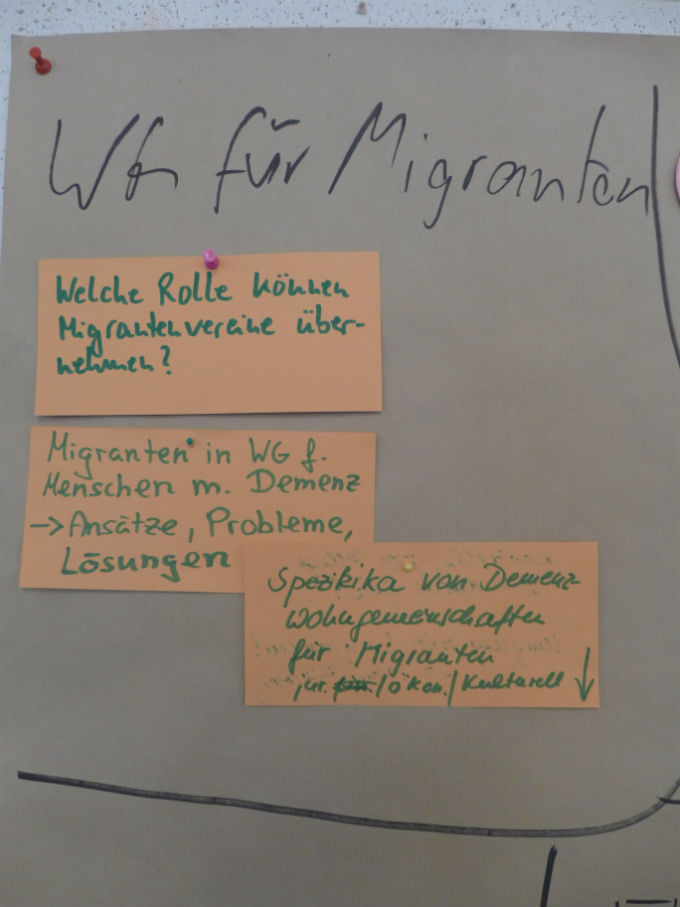 WG für Migranten
Welche Rolle können
Migrantenvereine über-
nehmen?
Migranten in WG f.
Menschen m. Demenz
→ Ansätze, Probleme,
Lösungen
Spezifika von Demenz-
wohngemeinschaften
für Migranten
jur. / ökon. / Kulturell ↓